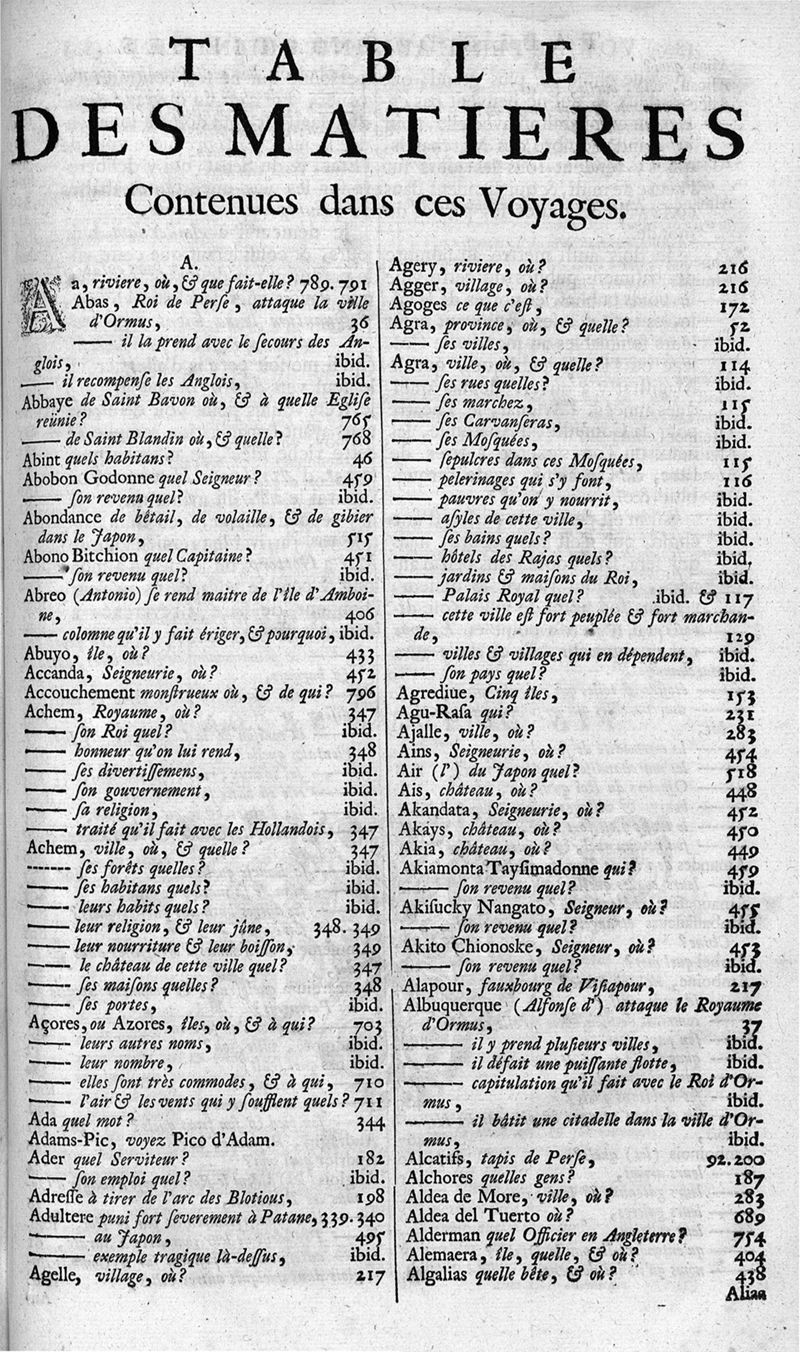 TABLE
DES MATIERES
Contenues dans ces Voyages.
A.
Aa, riviere, où, & que fait-elle? 789. 791
Abas, Roi de Perſe, attaque la ville
d'Ormus, 36
—— il la prend avec le ſecours des An-
glois, ibid.
—— il recompenſe les Anglois, ibid.
Abbaye de Saint Bavon où, & à quelle Egliſe
reünie? 765
—— de Saint Blandin où, & quelle? 768
Abint quels habitans? 46
Abobon Godonne quel Seigneur? 459
—— ſon revenu quel? ibid.
Abondance de bêtail, de volaille, & de gibier
dans le Japon, 515
Abono Bitchion quel Capitaine? 451
—— ſon revenu quel? ibid.
Abreo (Antonio) ſe rend maitre de l'île d'Amboi-
ne, 406
—— colomne qu'il y fait ériger, & pourquoi, ibid.
Abuyo, île, où? 433
Accanda, Seigneurie, où? 452
Accouchement monſtrueux où, & de qui? 796
Achem, Royaume, où? 347
—— ſon Roi quel? ibid.
—— honneur qu'on lui rend, 348
—— ſes divertiſſemens, ibid.
—— ſon gouvernement, ibid.
—— ſa religion, ibid.
—— traité qu'il fait avec les Hollandois, 347
Achem, ville, où, & quelle? 347
------ ſes forêts quelles? ibid.
—— ſes habitans quels? ibid.
—— leurs habits quels? ibid.
—— leur religion, & leur jûne, 348. 349
—— leur nourriture & leur boiſſon, 349
—— le château de cette ville quel? 347
—— ſes maiſons quelles? 348
—— ſes portes, ibid.
Açores, ou Azores, îles, où, & à qui? 703
—— leurs autres noms, ibid.
—— leur nombre, ibid.
—— elles ſont très commodes, & à qui, 710
—— l'air & les vents qui y ſoufflent quels? 711
Ada quel mot? 344
Adams-Pic, voyez Pico d'Adam.
Ader quel Serviteur? 182
—— ſon emploi quel? ibid.
Adreſſe à tirer de l'arc des Blotious, 198
Adultere puni fort ſeverement à Patane, 339. 340
—— au Japon, 495
—— exemple tragique là-deſſus, ibid.
Agelle, village, où? 217
Agery, riviere, où? 216
Agger, village, où? 216
Agoges ce que c'eſt, 172
Agra, province, où, & quelle? 52
—— ſes villes, ibid.
Agra, ville, où, & quelle? 114
—— ſes rues quelles? ibid.
—— ſes marchez, 115
—— ſes Carvanſeras, ibid.
—— ſes Moſquées, ibid.
—— ſepulcres dans ces Moſquées, 115
—— pelerinages qui s'y font, 116
—— pauvres qu'on y nourrit, ibid.
—— aſyles de cette ville, ibid.
—— ſes bains quels? ibid.
—— hôtels des Rajas quels? ibid.
—— jardins & maiſons du Roi, ibid.
—— Palais Royal quel? .ibid. & 117
—— cette ville eſt fort peuplée & fort marchan-
de, 129
—— villes & villages qui en dépendent, ibid.
—— ſon pays quel? ibid.
Agrediue, Cinq îles, 153
Agu-Raſa qui? 231
Ajalle, ville, où? 283
Ains, Seigneurie, où? 454
Air (l') du Japon quel? 518
Ais, château, où? 448
Akandata, Seigneurie, où? 452
Akays, château, où? 450
Akia, château, où? 449
Akiamonta Tayſimadonne qui? 459
—— ſon revenu quel? ibid.
Akiſucky Nangato, Seigneur, où? 455
—— ſon revenu quel? ibid.
Akito Chionoske, Seigneur, où? 453
—— ſon revenu quel? ibid.
Alapour, fauxbourg de Viſiapour, 217
Albuquerque (Alfonſe d') attaque le Royaume
d'Ormus, 37
—— il y prend pluſieurs villes, ibid.
—— il défait une puiſſante flotte, ibid.
—— capitulation qu'il fait avec le Roi d'Or-
mus, ibid.
—— il bâtit une citadelle dans la ville d'Or-
mus, ibid.
Alcatifs, tapis de Perſe, 92. 200
Alchores quelles gens? 187
Aldea de More, ville, où? 283
Aldea del Tuerto où? 689
Alderman quel Officier en Angleterre? 754
Alemaera, île, quelle, & où? 404
Algalias quelle bête, & où? 438
Aliaa